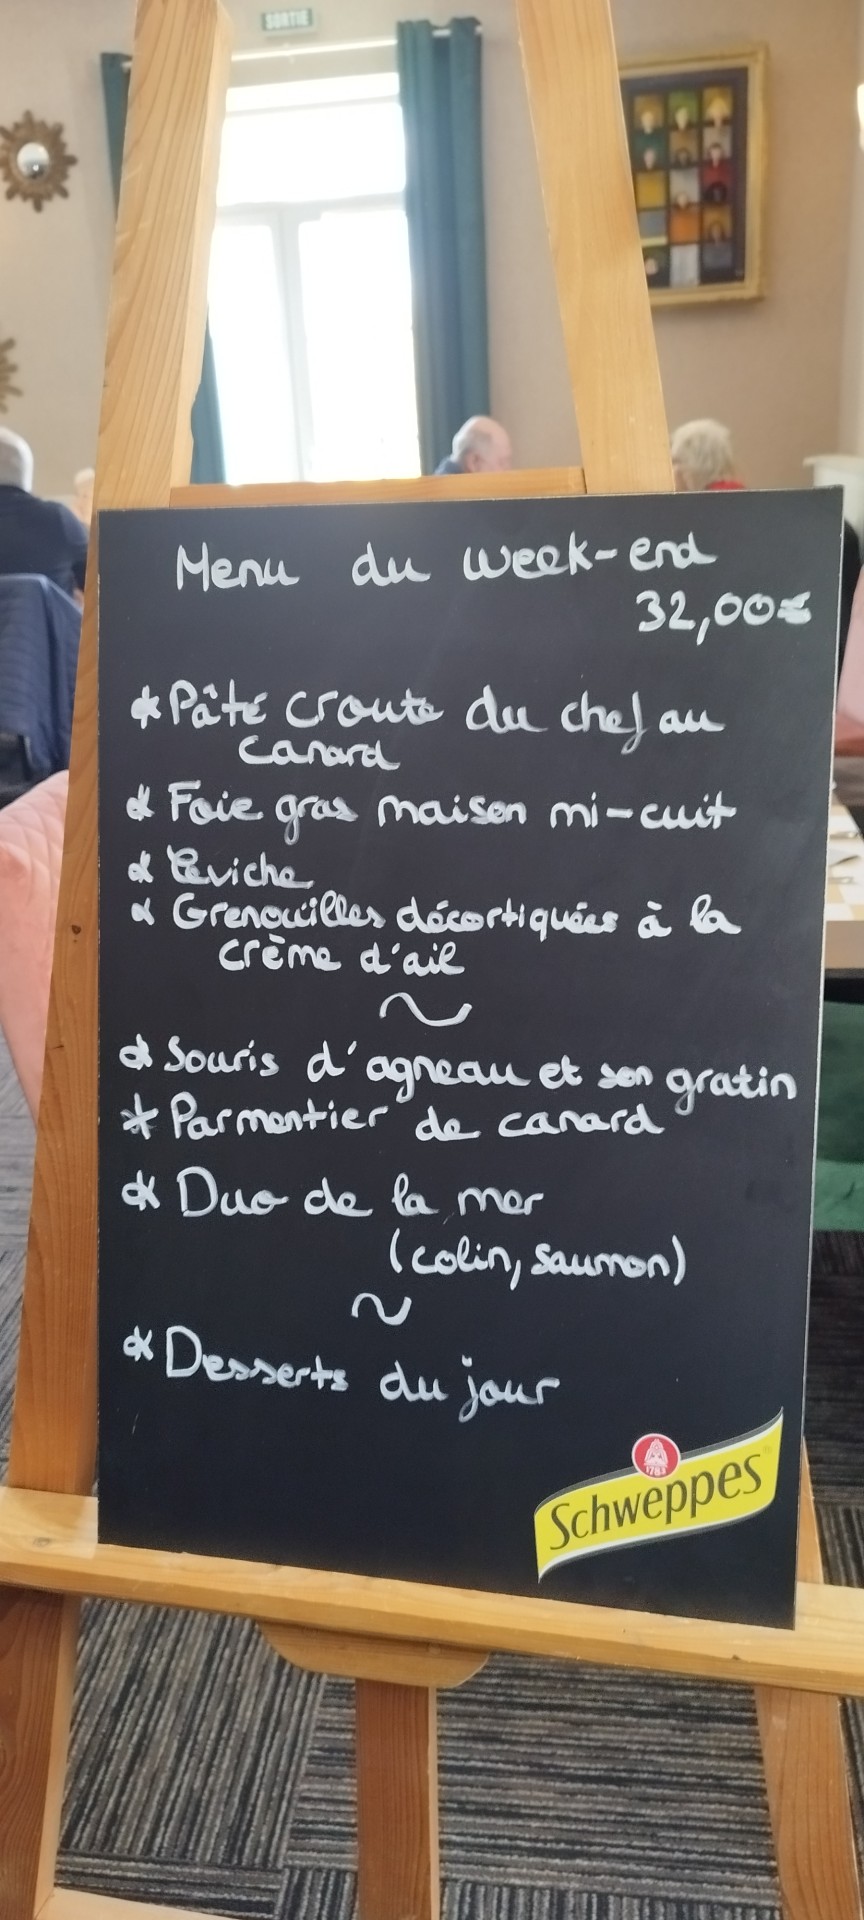 SORTIE
Menu du week-end
32,00€
* Pâté croute du chef au
canard
* Foie gras maison mi-cuit
* Ceviche
* Grenouilles décortiquées à la
crème d'ail
~
* Souris d'agneau et son gratin
* Parmentier de canard
* Duo de la mer
(colin, saumon)
~
* Desserts du jour
1783
Schweppes